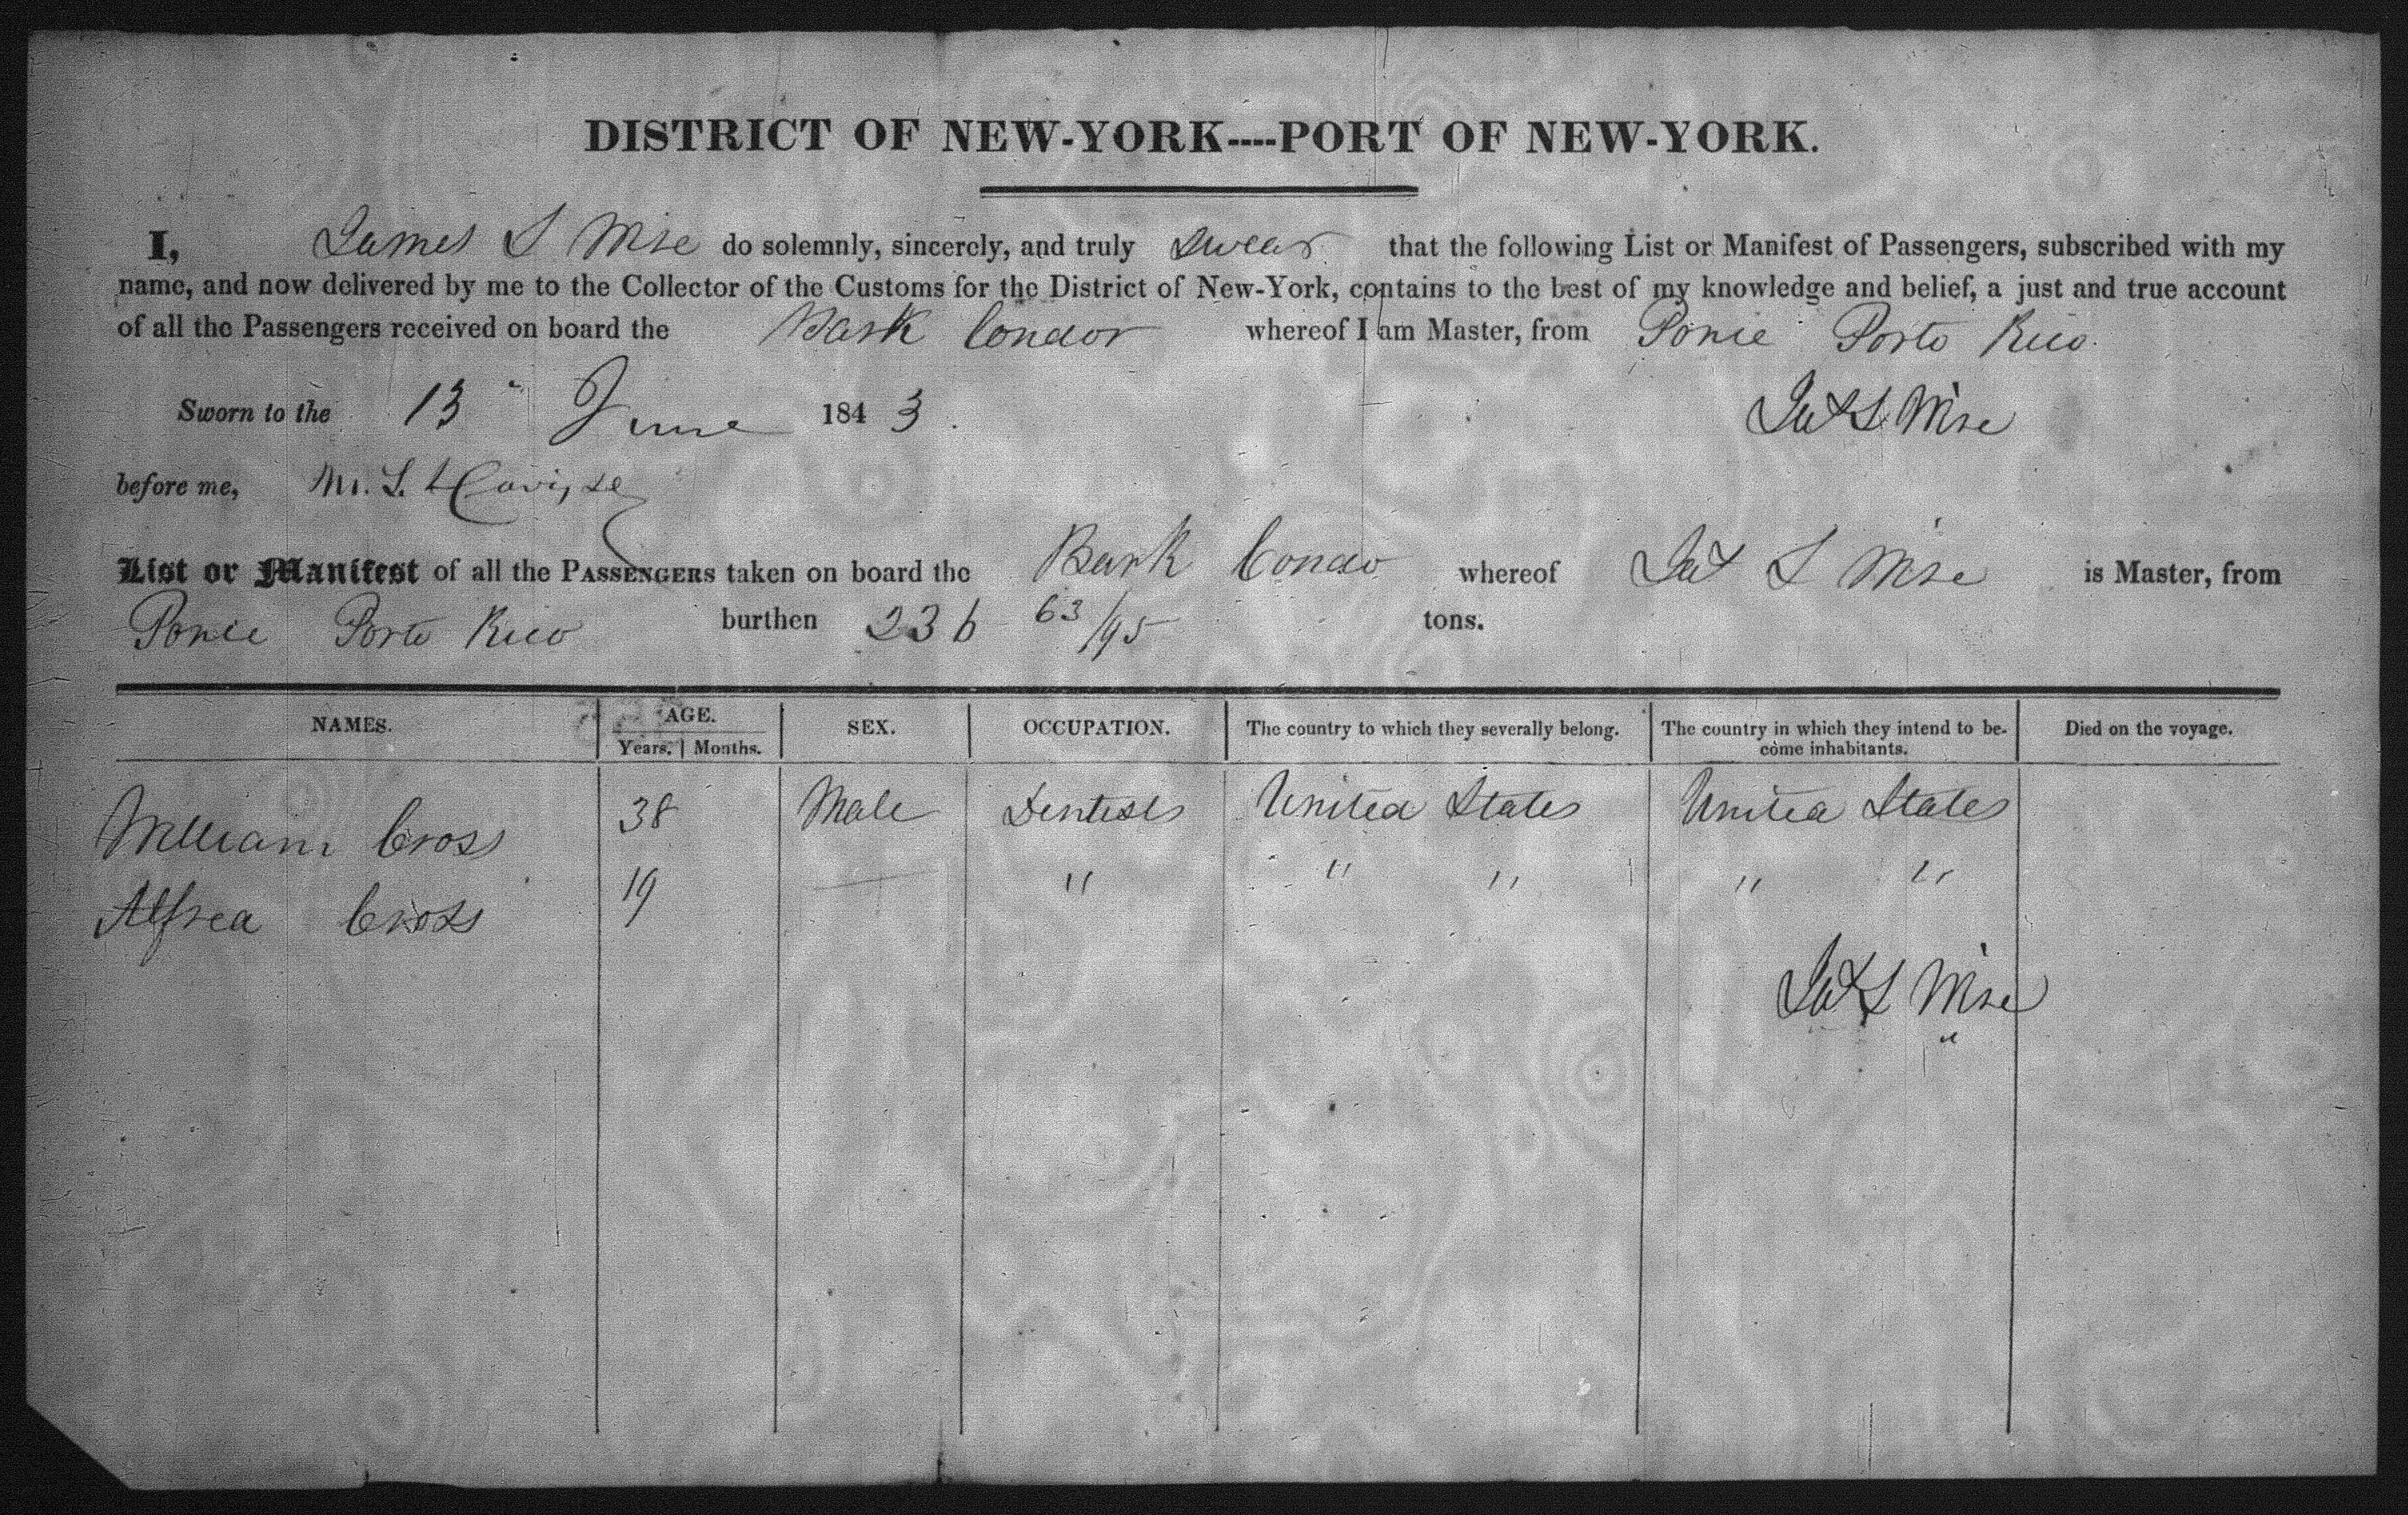 DISTRICT OF NEW-YORK----PORT OF NEW-YORK.
I, James S Wise do solemnly, sincerely, and truly swear that the following List or Manifest of Passengers, subscribed with my
name, and now delivered by me to the Collector of the Customs for the District of New-York, contains to the best of my knowledge and belief, a just and true account
of all the Passengers received on board the Bark Condor whereof I am Master, from Ponce Porto Rico.
Sworn to the 13 June 1843. Jas S Wise
before me, M. S.
List or Manifest of all the PASSENGERS taken on board the Bark Condor whereof Jas S Wise is Master, from
Ponce Porto Rico burthen 236 63/95 tons.
NAMES. AGE. Years. Months. SEX. OCCUPATION. The country to which they severally belong. The country in which they intend to become inhabitants. Died on the voyage.
William Cross 38 Male Dentist United States United States
Alfred Cross 19 — " " " " "
Jas S Wise